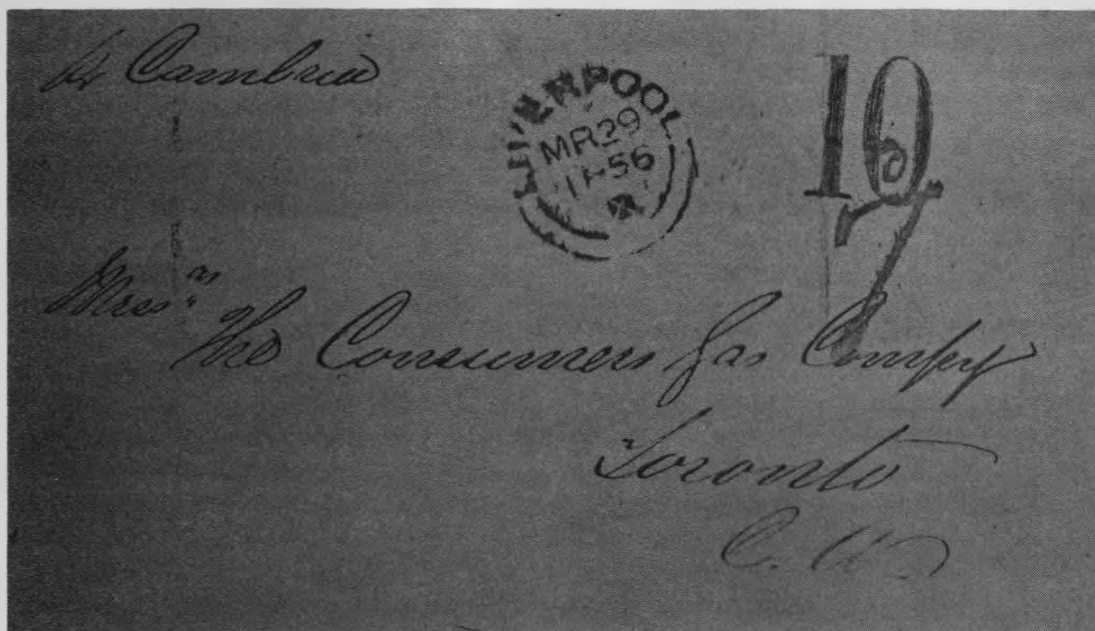 Pr Cambria
LIVERPOOL
MR 29
56
10
7
Messrs
The Consumers Gas Compy
Toronto
C. W.